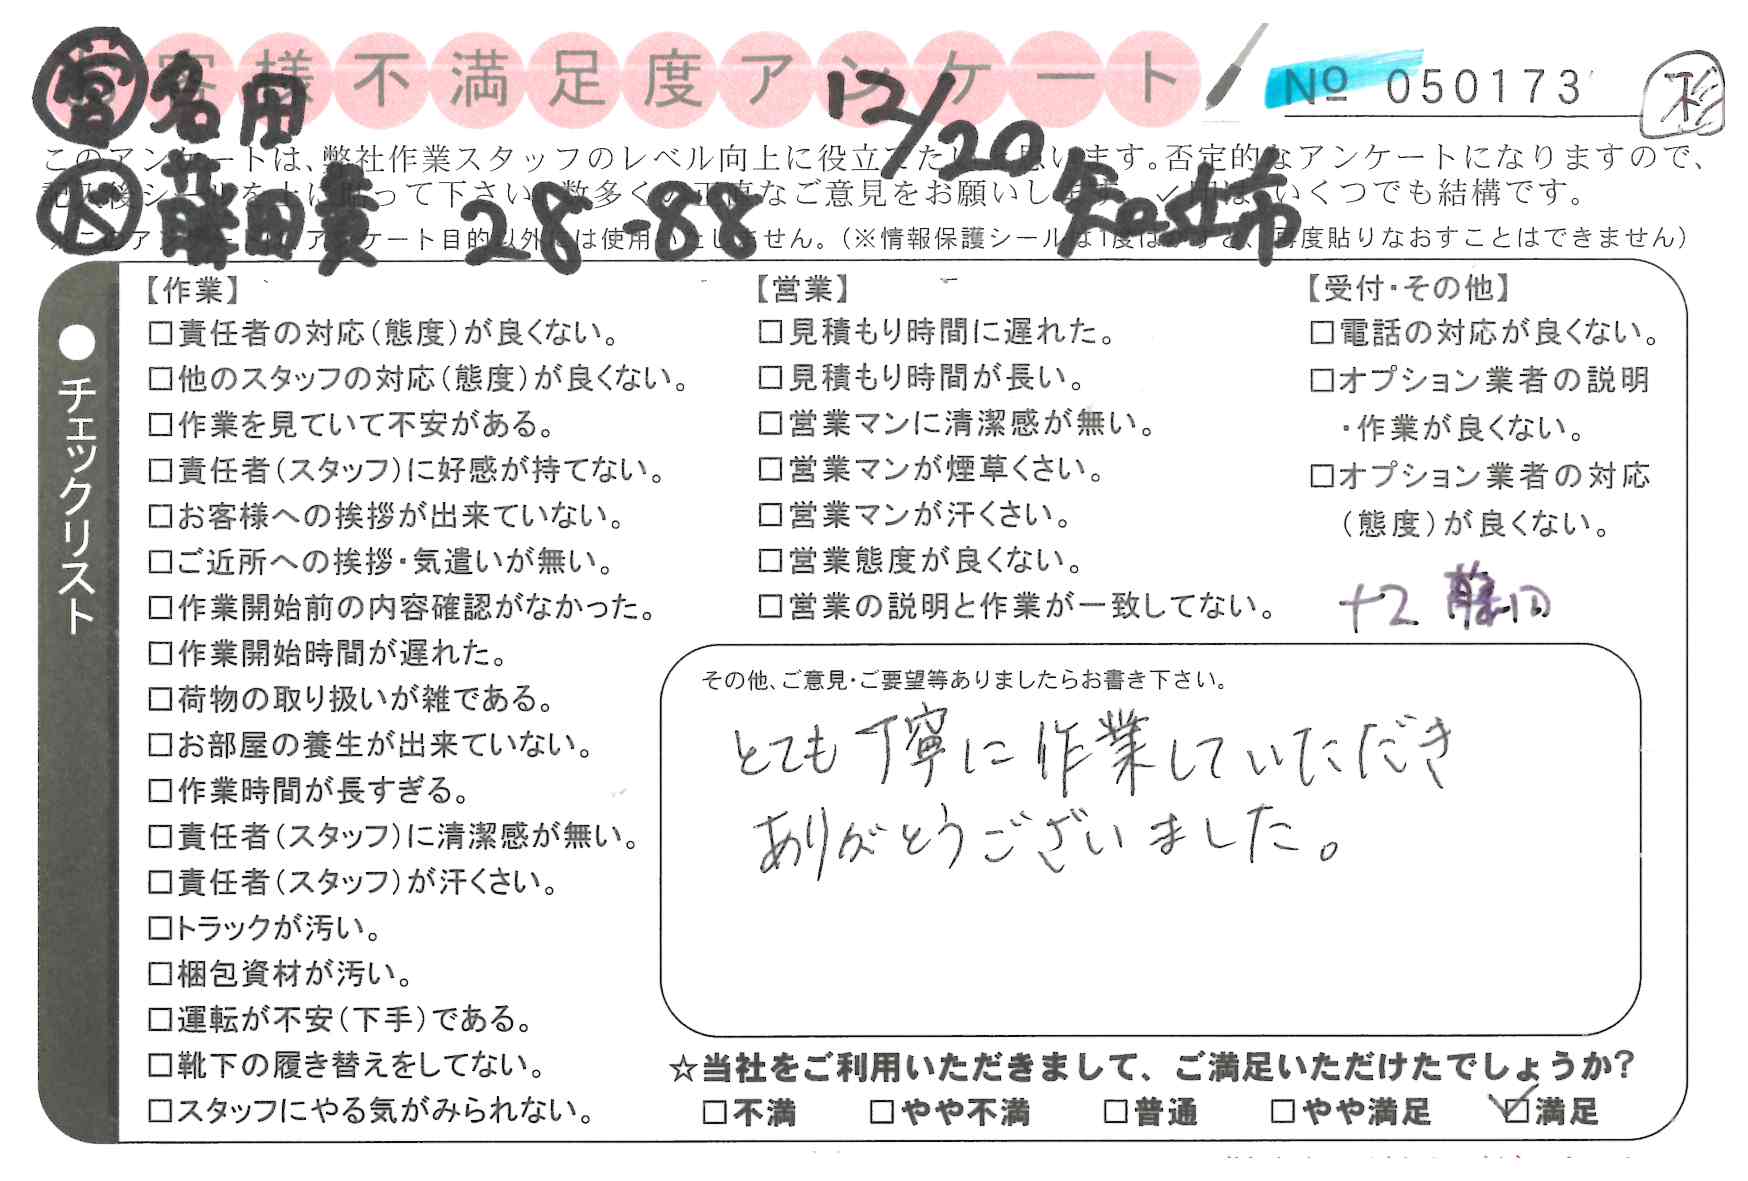 客様不満足度アンケート
№ 050173
営 名田 12/20
このアンケートは、弊社作業スタッフのレベル向上に役立てたいと思います。否定的なアンケートになりますので、
記入後シールを上に貼って下さい。数多くの正直なご意見をお願いします。✓印はいくつでも結構です。
藤田貴 28-88 知立市
アンケート目的以外には使用いたしません。(※情報保護シールは1度はがすと、再度貼りなおすことはできません)
●チェックリスト
【作業】
□責任者の対応(態度)が良くない。
□他のスタッフの対応(態度)が良くない。
□作業を見ていて不安がある。
□責任者(スタッフ)に好感が持てない。
□お客様への挨拶が出来ていない。
□ご近所への挨拶・気遣いが無い。
□作業開始前の内容確認がなかった。
□作業開始時間が遅れた。
□荷物の取り扱いが雑である。
□お部屋の養生が出来ていない。
□作業時間が長すぎる。
□責任者(スタッフ)に清潔感が無い。
□責任者(スタッフ)が汗くさい。
□トラックが汚い。
□梱包資材が汚い。
□運転が不安(下手)である。
□靴下の履き替えをしてない。
□スタッフにやる気がみられない。
【営業】
□見積もり時間に遅れた。
□見積もり時間が長い。
□営業マンに清潔感が無い。
□営業マンが煙草くさい。
□営業マンが汗くさい。
□営業態度が良くない。
□営業の説明と作業が一致してない。
【受付・その他】
□電話の対応が良くない。
□オプション業者の説明
・作業が良くない。
□オプション業者の対応
(態度)が良くない。
+2 藤田
その他、ご意見・ご要望等ありましたらお書き下さい。
とても丁寧に作業していただき
ありがとうございました。
☆当社をご利用いただきまして、ご満足いただけたでしょうか?
□不満 □やや不満 □普通 □やや満足 ☑満足